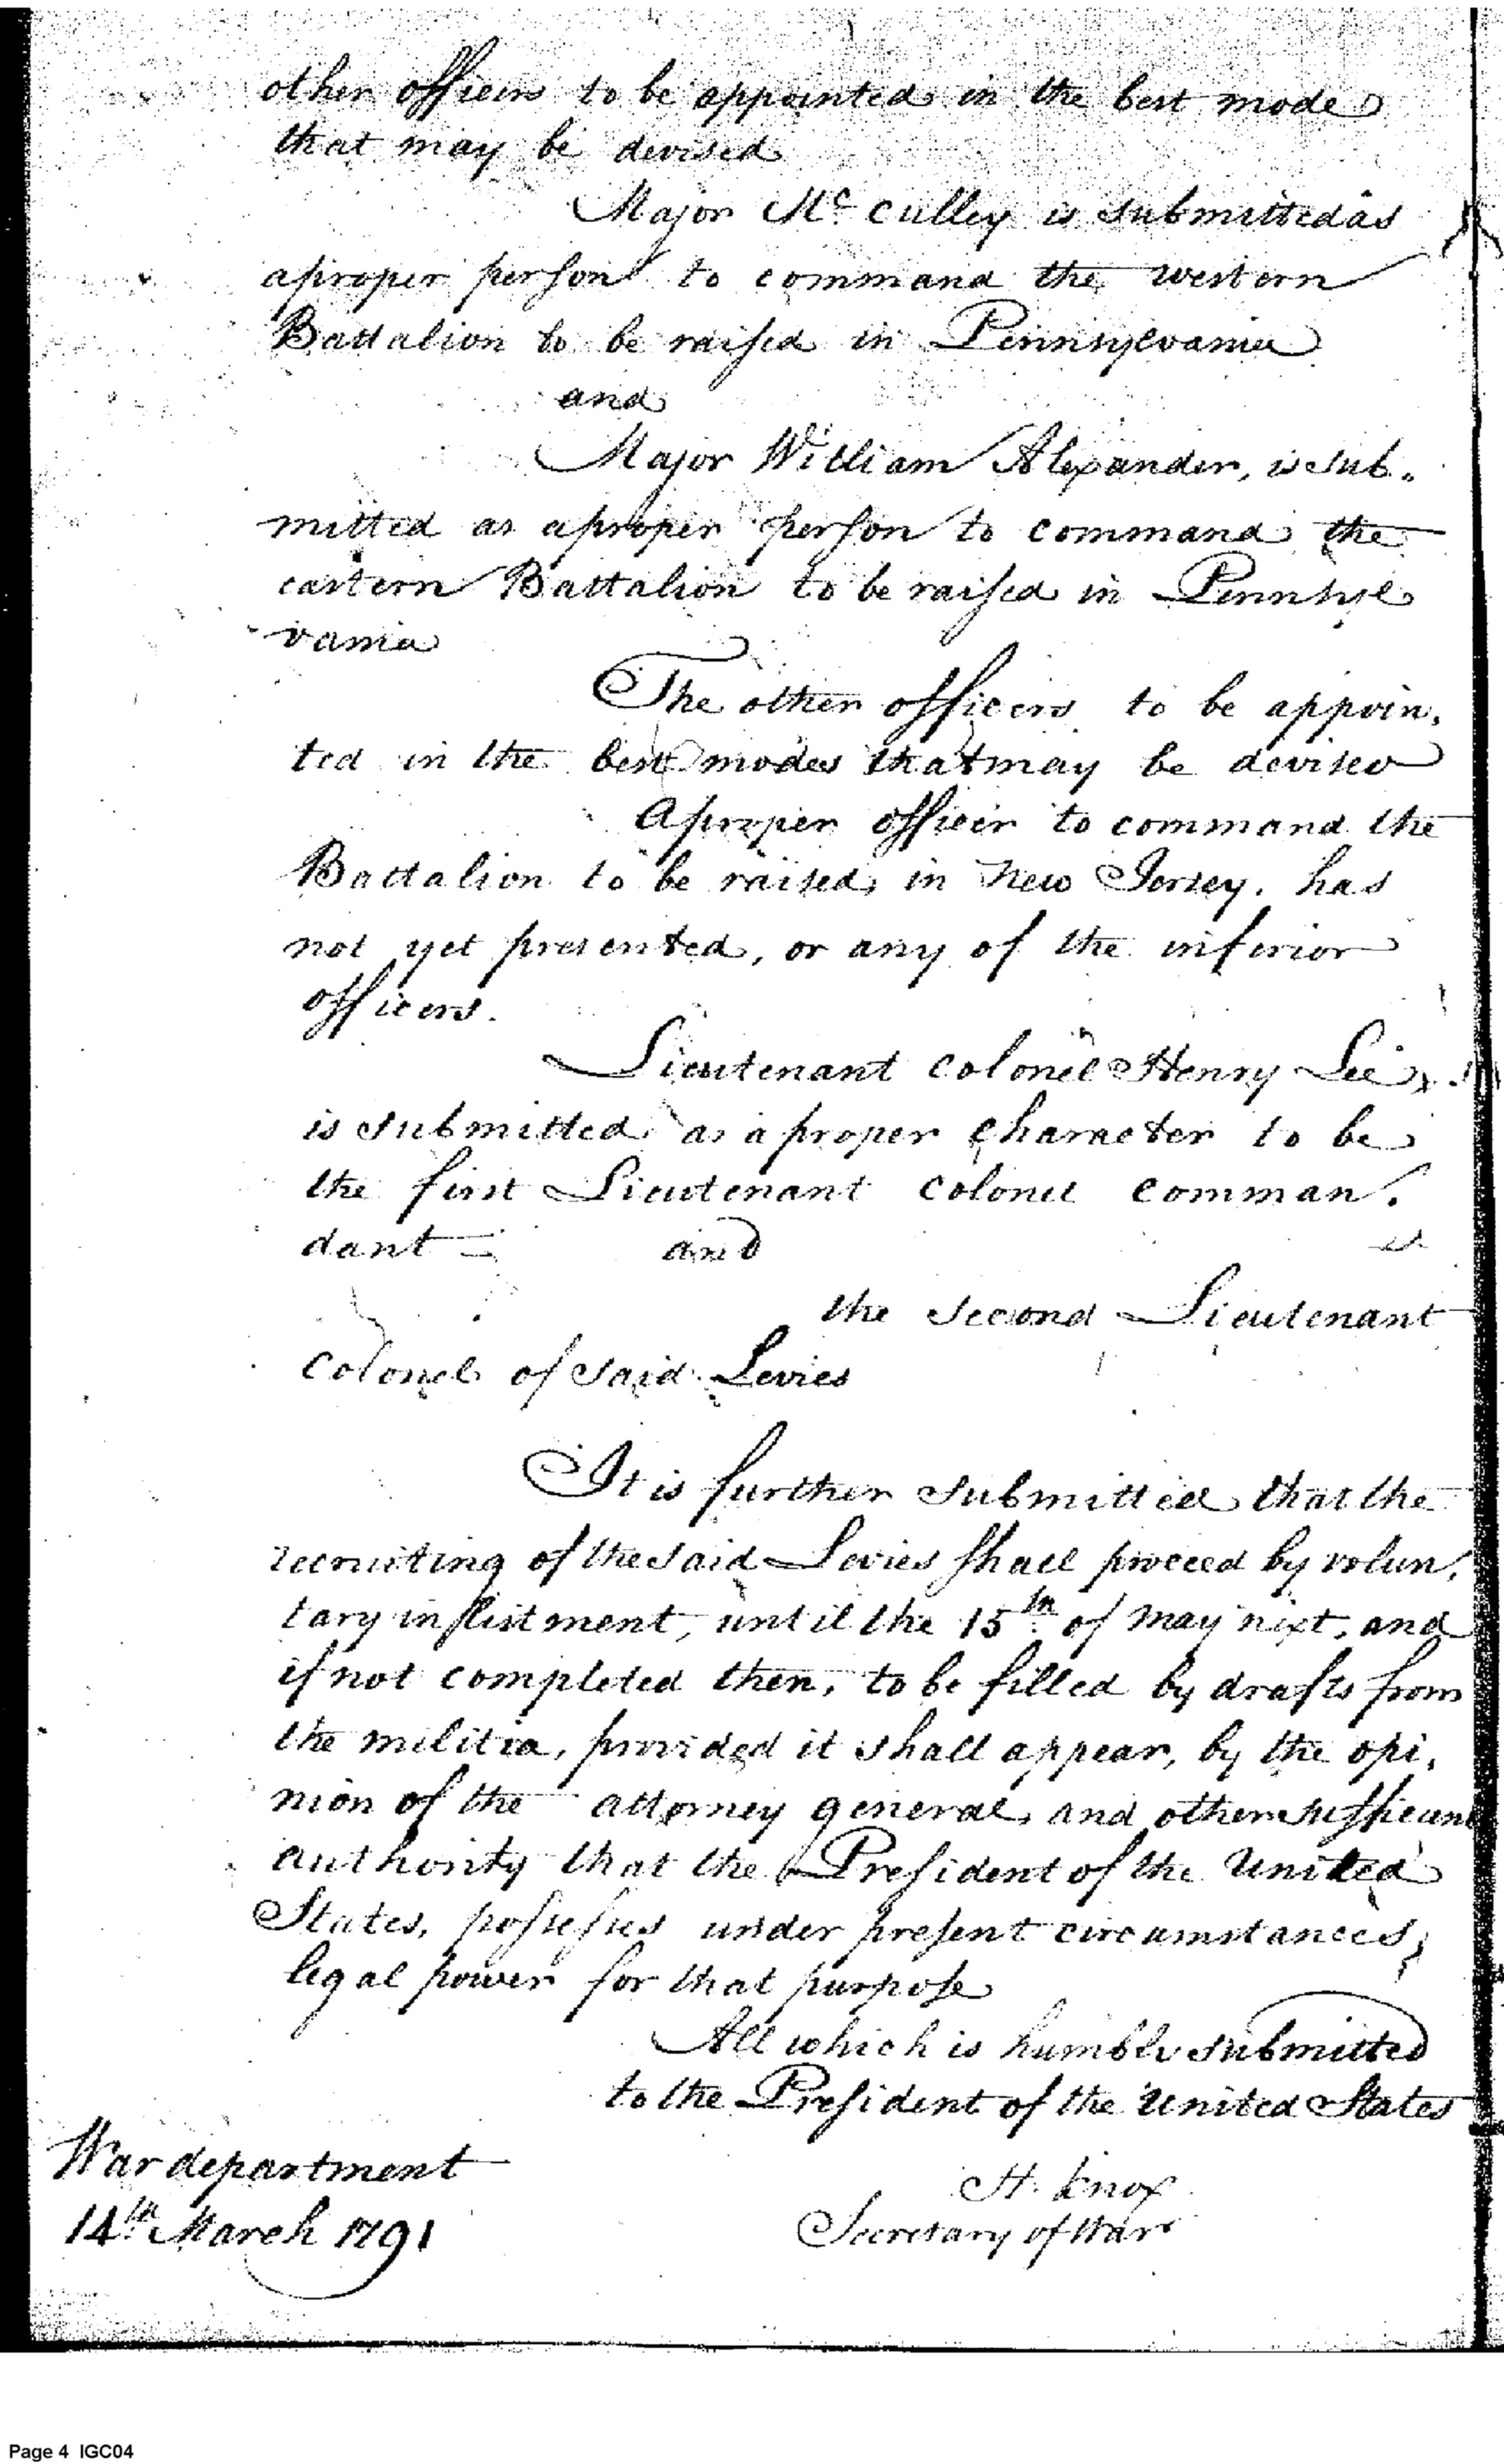 other officers to be appointed in the best mode
that may be devised
Major Mc. Culley is submitted as
a proper person to command the western
Battalion to be raised in Pennsylvania
and
Major William Alexander, is sub-
mitted as a proper person to command the
eastern Battalion to be raised in Pennsyl
vania
The other officers to be appoin-
ted in the best modes that may be devised
A proper officer to command the
Battalion to be raised, in New Jersey, has
not yet presented, or any of the inferior
officers.
Lieutenant Colonel Henry Lee,
is submitted as a proper character to be
the first Lieutenant Colonel comman-
dant — and
the second Lieutenant
Colonel of said Levies
It is further submitted that the
recruiting of the said Levies shall proceed by volun-
tary inlistment, until the 15th of May next, and
if not completed then, to be filled by drafts from
the militia, provided it shall appear, by the opi-
nion of the attorney general, and other sufficient
authority that the President of the United
States, possesses under present circumstances,
legal power for that purpose
All which is humbly submitted
to the President of the United States
War department
14th March 1791
H. Knox
Secretary of War
Page 4 IGC04